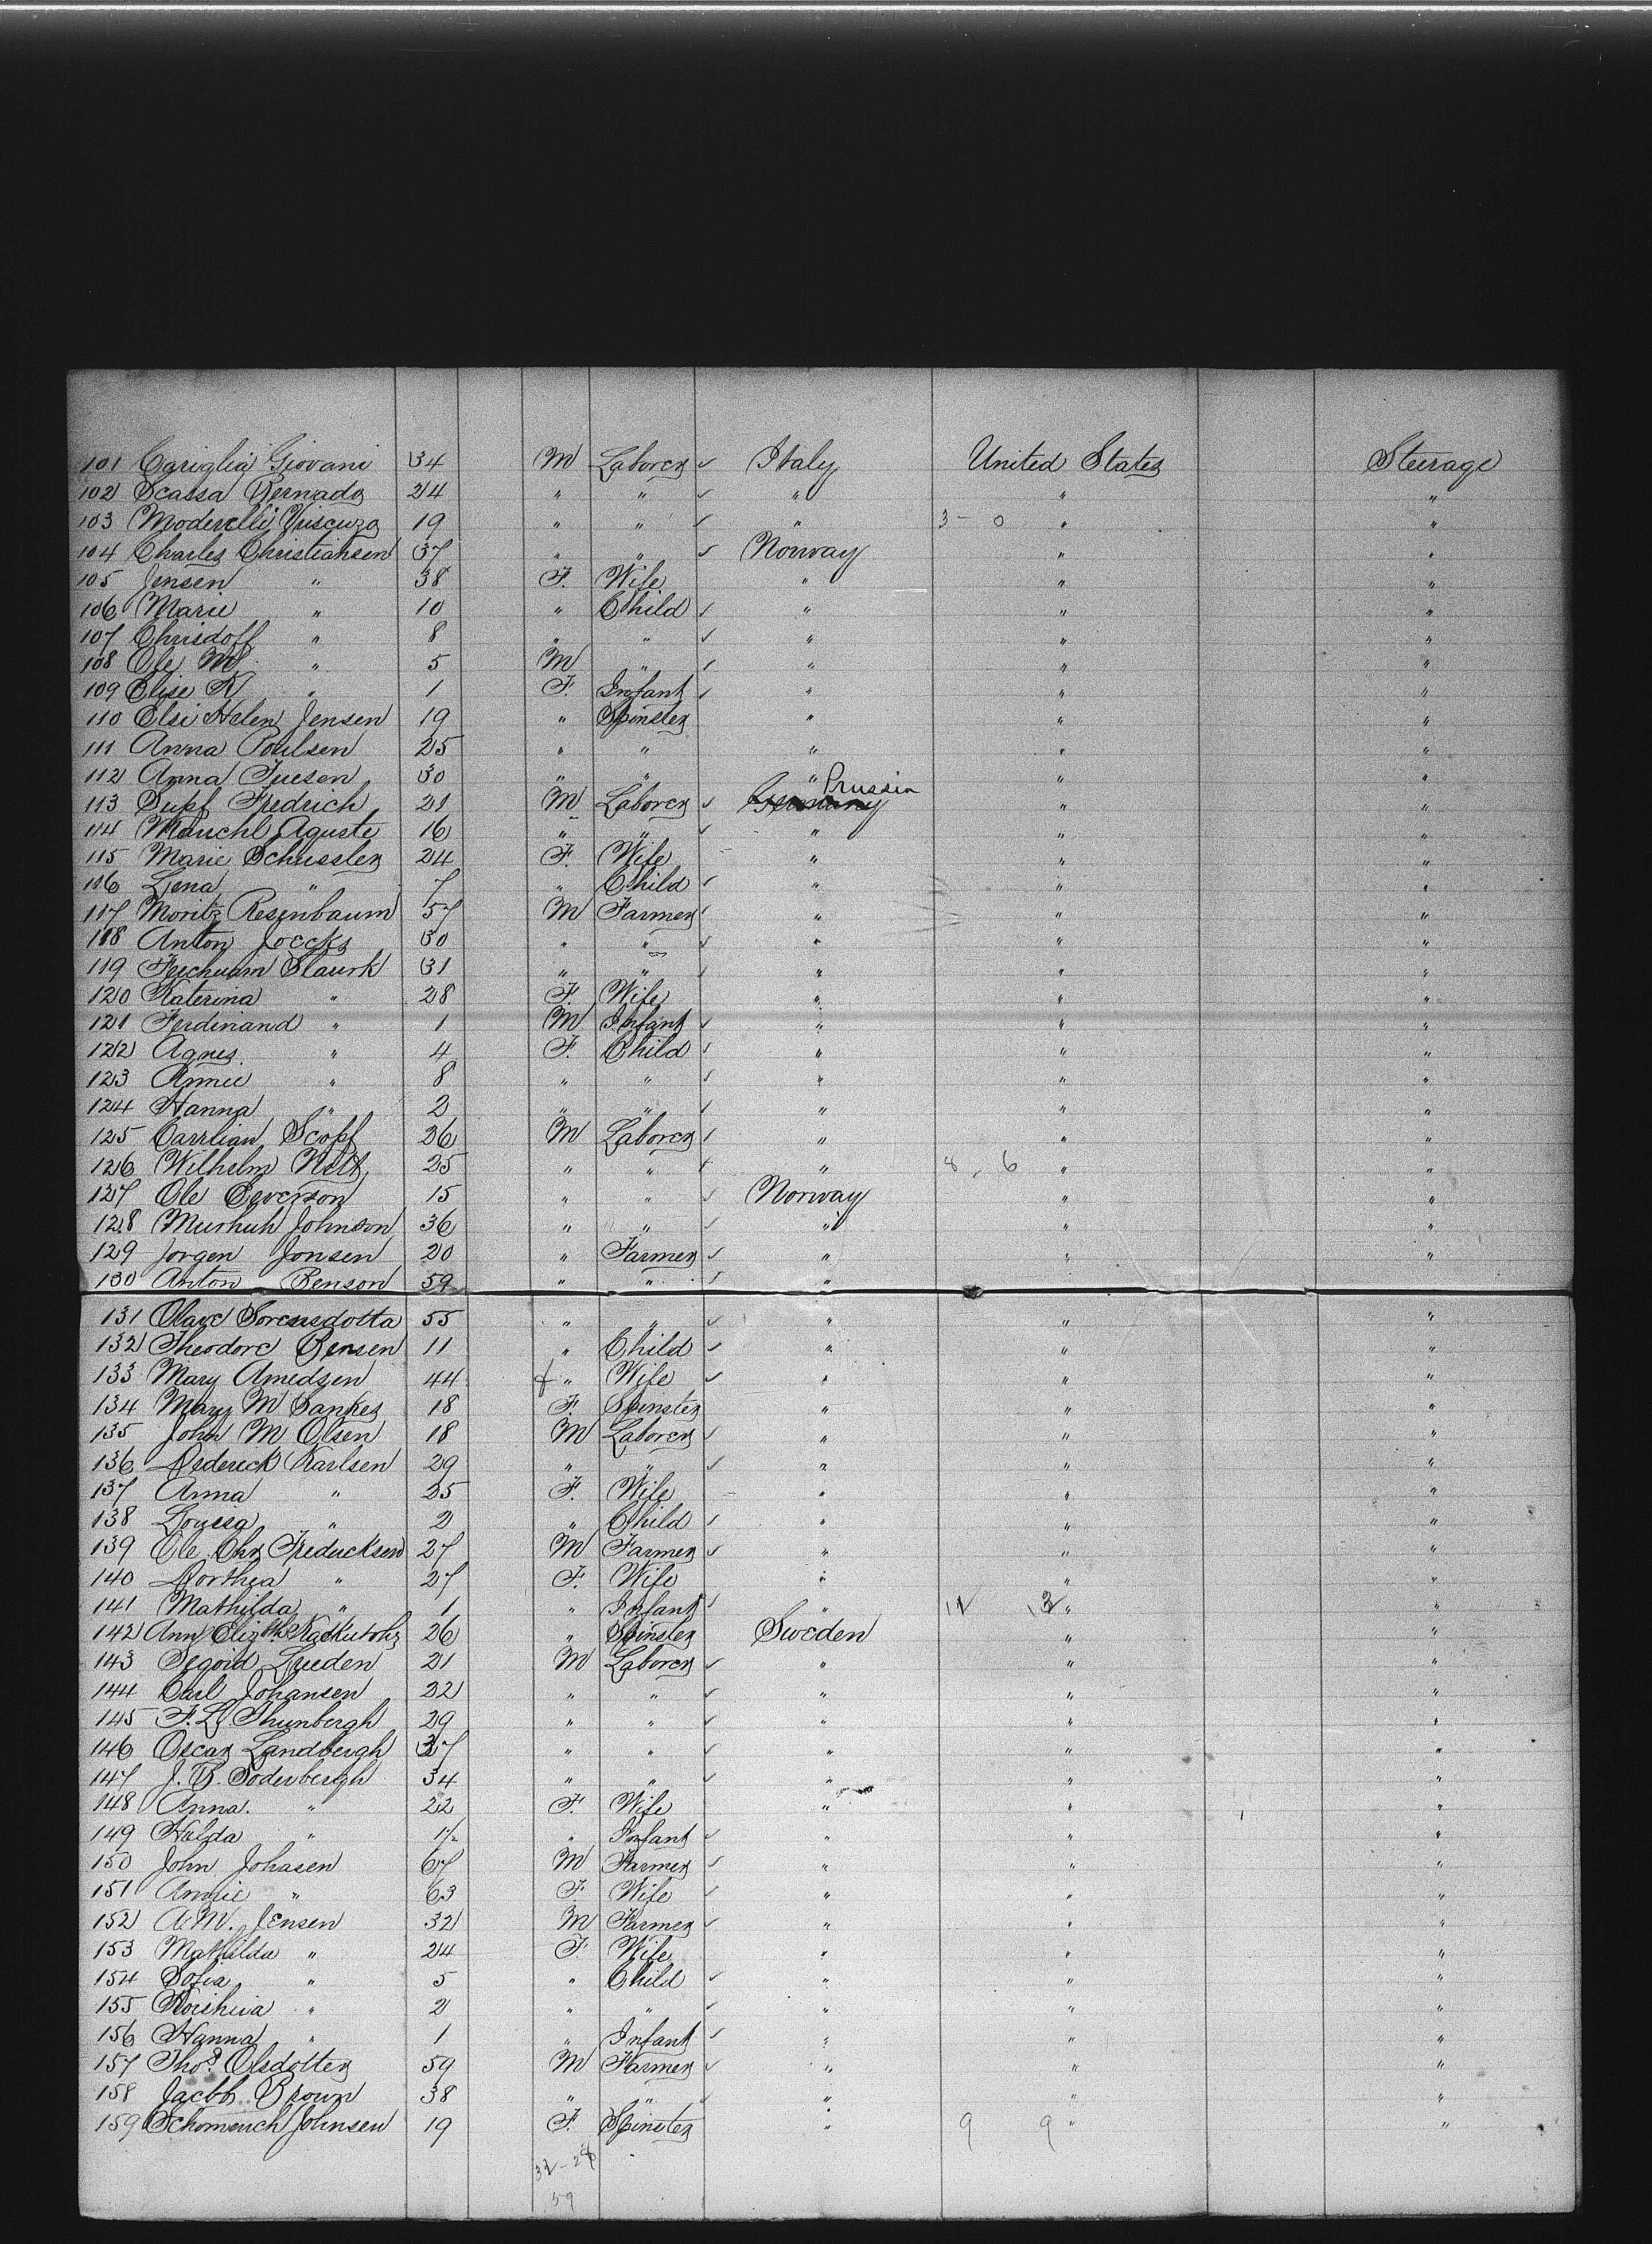 101 Cariglia Giovani 34 M Laborer ✓ Italy United States Steerage
102 Scassa Bernado 24 " " ✓ " " "
103 Moderelli 19 " " ✓ " 3 - 0 " "
104 Charles Christiansen 37 " " ✓ Norway " "
105 Jensen " 38 F. Wife " " "
106 Marie " 10 " Child ✓ " " "
107 Chrisdoff " 8 " " ✓ " " "
108 Ole M " 5 M " ✓ " " "
109 Elise K " 1 F. Infant ✓ " " "
110 Elsi Helen Jensen 19 " Spinster " " "
111 Anna Poulsen 25 " " " " "
112 Anna 30 " " " " "
113 Supf Fredrich 21 M Laborer ✓ Germany Prussia " "
114 Mauchl Aguste 16 " " ✓ " " "
115 Marie Schussler 24 F. Wife - " " "
116 Lena " 7 " Child ✓ " " "
117 Moritz Resenbaum 57 M Farmer ✓ " " "
118 Anton Joecks 30 " " ✓ " " "
119 Slaurk 31 " " ✓ " " "
120 Katerina " 28 F. Wife " " "
121 Ferdinand " 1 M Infant ✓ " " "
122 Agnes " 4 F. Child ✓ " " "
123 Annie " 8 " " ✓ " " "
124 Hanna " 2 " " ✓ " " "
125 Carrlian Scopf 26 M Laborer ✓ " " "
126 Wilhelm 25 " " ✓ " 8 , 6 " "
127 Ole Eeverson 15 " " ✓ Norway " "
128 Johnson 36 " " ✓ " " "
129 Jorgen Jonsen 20 " Farmer ✓ " " "
130 Anton Benson 59 " " ✓ "
131 Olave Sorensdotta 55 " " ✓ " " "
132 Theodore Bensen 11 " Child ✓ " " "
133 Mary Amedsen 44 f " Wife ✓ " " "
134 Mary M Sankes 18 F. Spinster " " "
135 John M Olsen 18 M Laborer ✓ " " "
136 Dedereck Karlsen 29 " " ✓ " " "
137 Anna " 25 F. Wife - " " "
138 Louisa " 2 " Child ✓ " " "
139 Ole Chr Fredericksen 27 M Farmer ✓ " " "
140 Dorthea " 27 F. Wife " " "
141 Mathilda " 1 " Infant ✓ " " "
142 Ann Elizbth 26 " Spinster Sweden " "
143 Segoid Lueden 21 M Laborer ✓ " " "
144 Carl Johansen 22 " " ✓ " " "
145 F. L. Thunbergh 29 " " ✓ " " "
146 Oscar Landbergh 37 " " ✓ " " "
147 J. B. Soderbergh 34 " " ✓ " " "
148 Anna. " 22 F. Wife " " "
149 Hulda " 1/2 " Infant ✓ " " "
150 John Johasen 67 M Farmer ✓ " " "
151 Annie " 63 F. Wife ✓ " " "
152 A. M. Jensen 32 M Farmer ✓ " " "
153 Mathilda " 24 F. Wife " " "
154 Sofia " 5 " Child ✓ " " "
155 " 2 " " ✓ " " "
156 Hanna " 1 " Infant ✓ " " "
157 Thos. Olsdotter 59 M Farmer ✓ " " "
158 Jacob Brown 38 " " ✓ " " "
159 Johnsen 19 F. Spinster " 9 9 " "
59